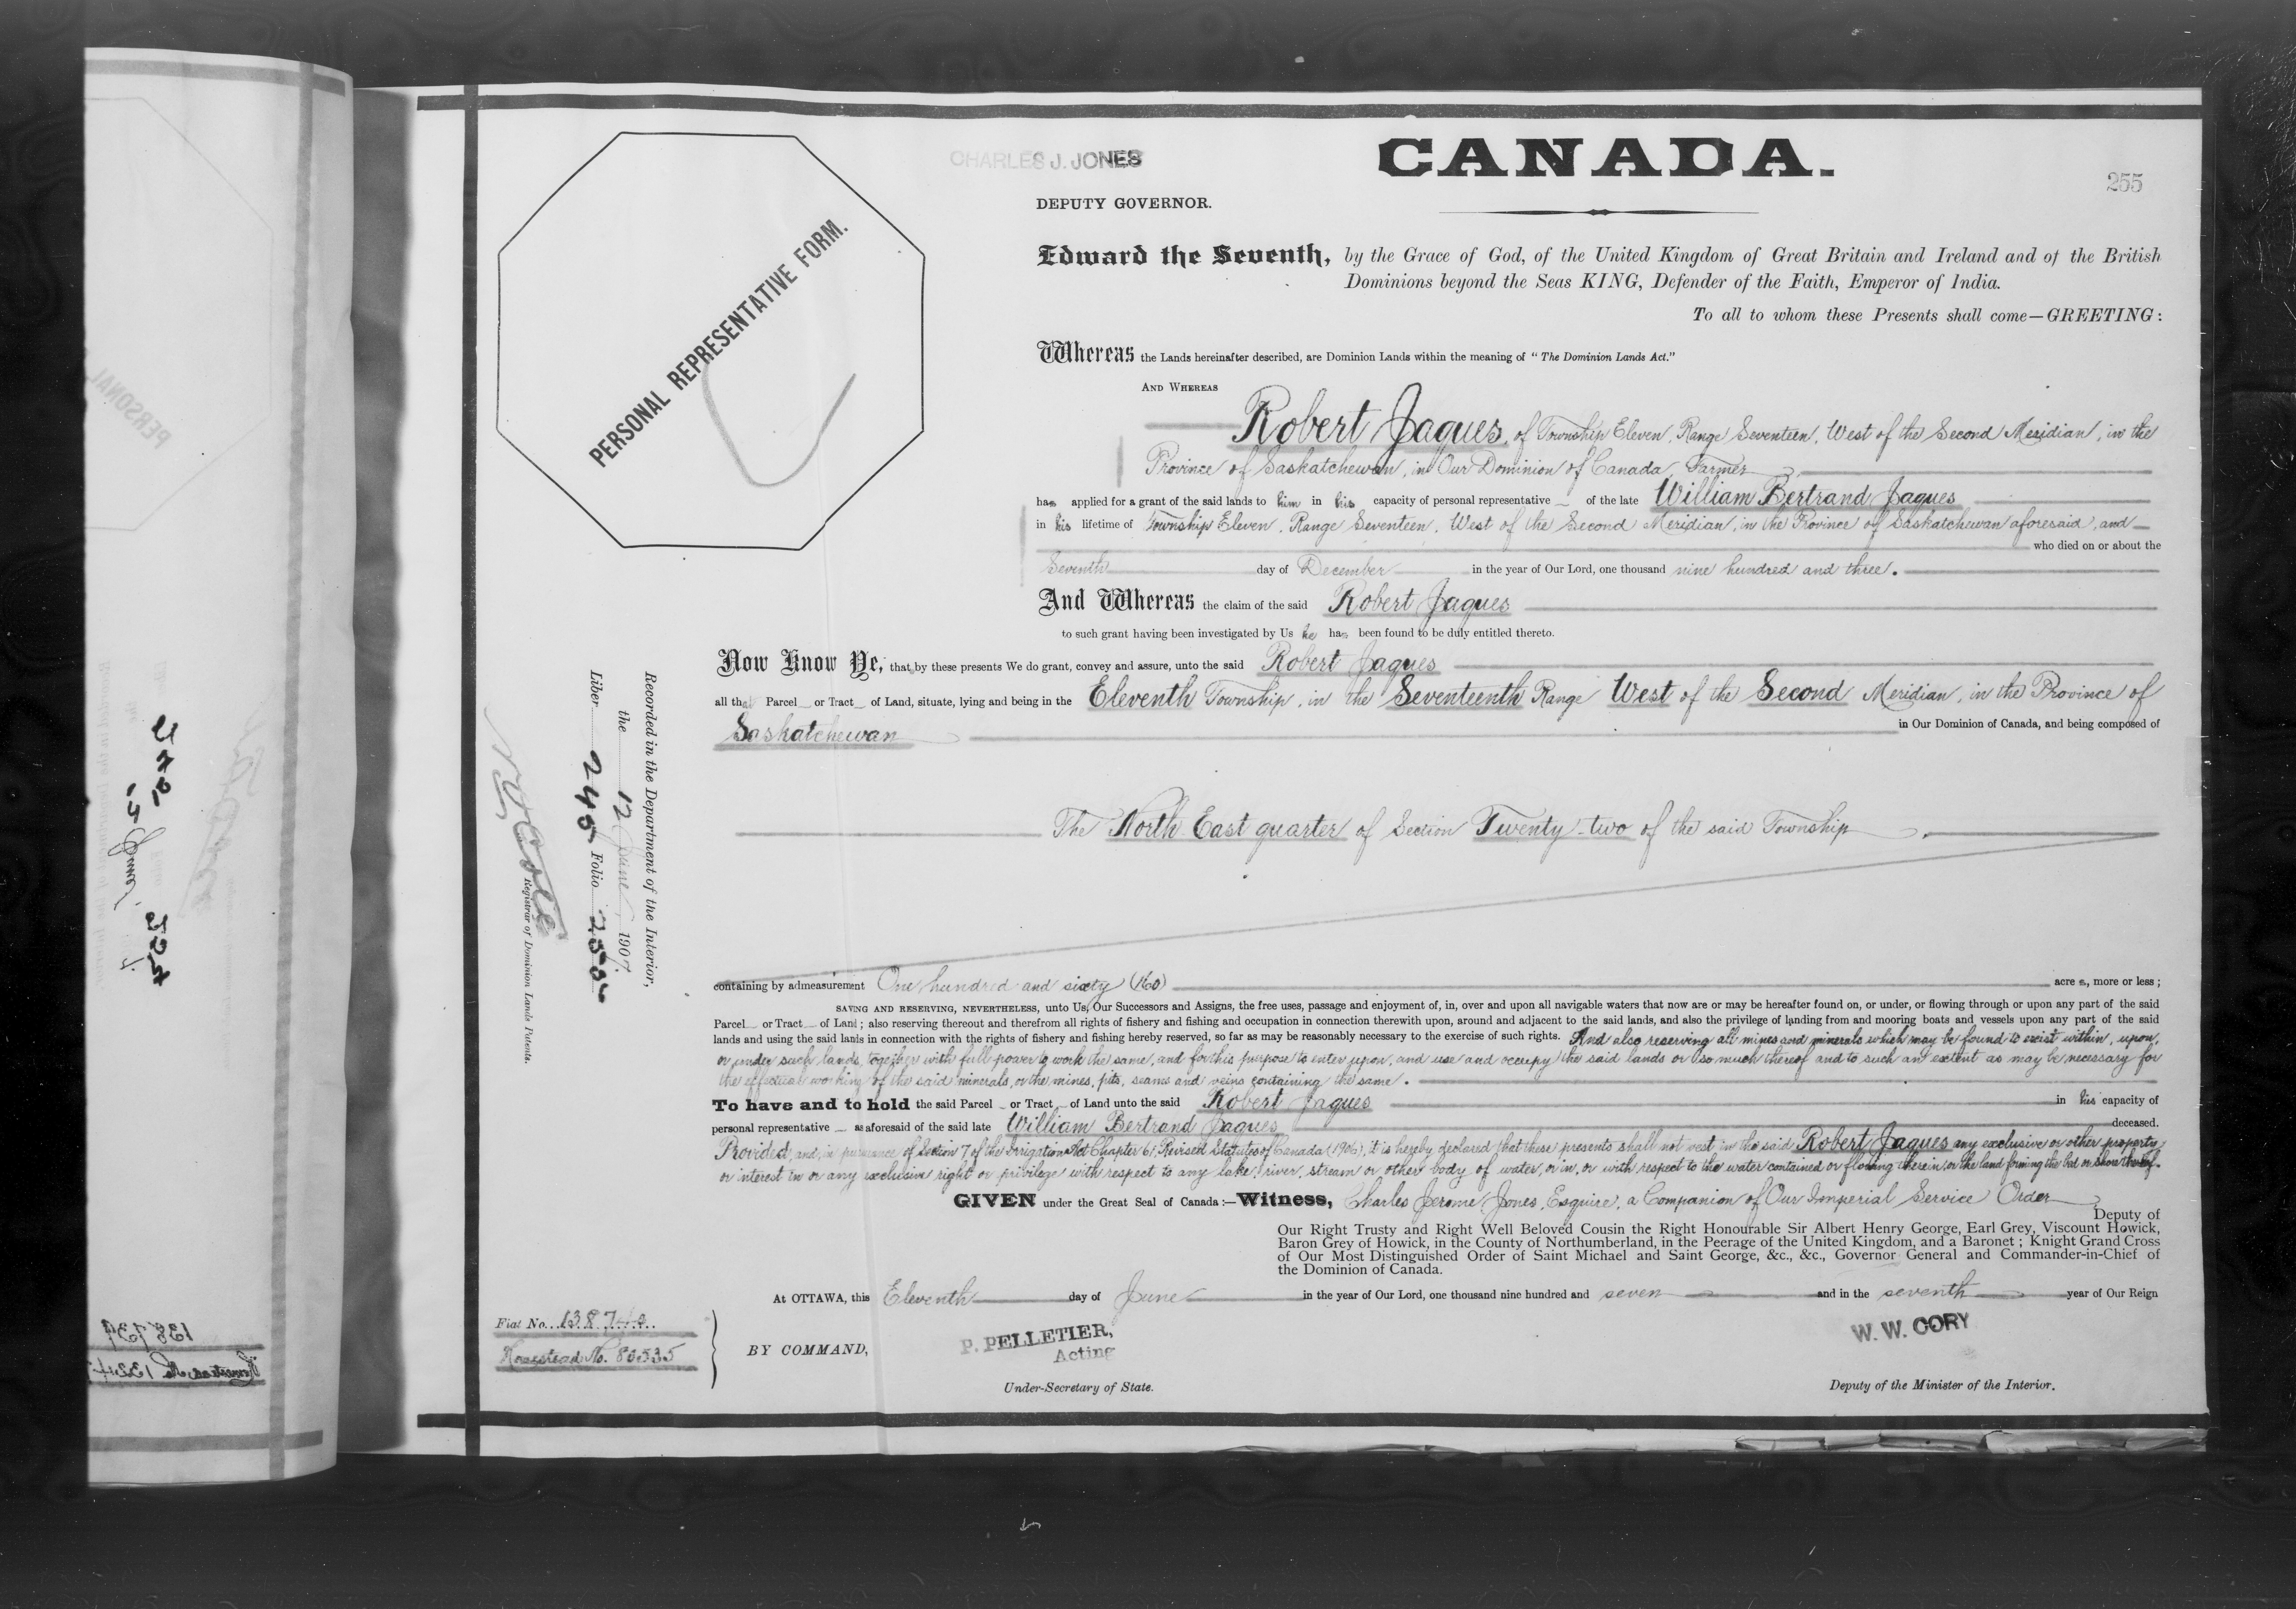 CHARLES J. JONES
CANADA.
255
DEPUTY GOVERNOR.
PERSONAL REPRESENTATIVE FORM.
Edward the Seventh, by the Grace of God, of the United Kingdom of Great Britain and Ireland and of the British
Dominions beyond the Seas KING, Defender of the Faith, Emperor of India.
To all to whom these Presents shall come—GREETING:
Whereas the Lands hereinafter described, are Dominion Lands within the meaning of "The Dominion Lands Act."
AND WHEREAS
Robert Jaques, of Township Eleven, Range Seventeen, West of the Second Meridian, in the
Province of Saskatchewan, in Our Dominion of Canada, Farmer
has applied for a grant of the said lands to him in his capacity of personal representative of the late William Bertrand Jaques
in his lifetime of Township Eleven, Range Seventeen, West of the Second Meridian, in the Province of Saskatchewan aforesaid, and
who died on or about the
Seventh day of December in the year of Our Lord, one thousand nine hundred and three.
And Whereas the claim of the said Robert Jaques
to such grant having been investigated by Us he has been found to be duly entitled thereto.
Now Know Ye, that by these presents We do grant, convey and assure, unto the said Robert Jaques
all that Parcel or Tract of Land, situate, lying and being in the Eleventh Township, in the Seventeenth Range West of the Second Meridian, in the Province of
Saskatchewan in Our Dominion of Canada, and being composed of
The North East quarter of Section Twenty-two of the said Township
containing by admeasurement One hundred and sixty (160) acres, more or less;
SAVING AND RESERVING, NEVERTHELESS, unto Us, Our Successors and Assigns, the free uses, passage and enjoyment of, in, over and upon all navigable waters that now are or may be hereafter found on, or under, or flowing through or upon any part of the said
Parcel or Tract of Land; also reserving thereout and therefrom all rights of fishery and fishing and occupation in connection therewith upon, around and adjacent to the said lands, and also the privilege of landing from and mooring boats and vessels upon any part of the said
lands and using the said lands in connection with the rights of fishery and fishing hereby reserved, so far as may be reasonably necessary to the exercise of such rights. And also reserving all mines and minerals which may be found to exist within, upon,
or under such lands, together with full power to work the same, and for this purpose to enter upon, and use and occupy the said lands or so much thereof and to such an extent as may be necessary for
the effectual working of the said minerals, or the mines, pits, seams and veins containing the same.
To have and to hold the said Parcel or Tract of Land unto the said Robert Jaques in his capacity of
personal representative as aforesaid of the said late William Bertrand Jaques deceased.
Provided, and, in pursuance of Section 7 of the Irrigation Act Chapter 61, Revised Statutes of Canada (1906), it is hereby declared that these presents shall not vest in the said Robert Jaques any exclusive or other property
or interest in or any exclusive right or privilege with respect to any lake, river, stream or other body of water, or in, or with respect to the water contained or flowing therein, or the land forming the bed or shore thereof.
GIVEN under the Great Seal of Canada:—Witness, Charles Jerome Jones, Esquire, a Companion of Our Imperial Service Order
Deputy of
Our Right Trusty and Right Well Beloved Cousin the Right Honourable Sir Albert Henry George, Earl Grey, Viscount Howick,
Baron Grey of Howick, in the County of Northumberland, in the Peerage of the United Kingdom, and a Baronet; Knight Grand Cross
of Our Most Distinguished Order of Saint Michael and Saint George, &c., &c., Governor General and Commander-in-Chief of
the Dominion of Canada.
At OTTAWA, this Eleventh day of June in the year of Our Lord, one thousand nine hundred and seven and in the seventh year of Our Reign
BY COMMAND,
P. PELLETIER,
Acting
Under-Secretary of State.
W. W. CORY
Deputy of the Minister of the Interior.
Fiat No. 138740
Homestead No. 80535
Recorded in the Department of the Interior,
the 12 June 1907
Liber 245 Folio 255
Registrar of Dominion Lands Patents.
PERSONAL
138739